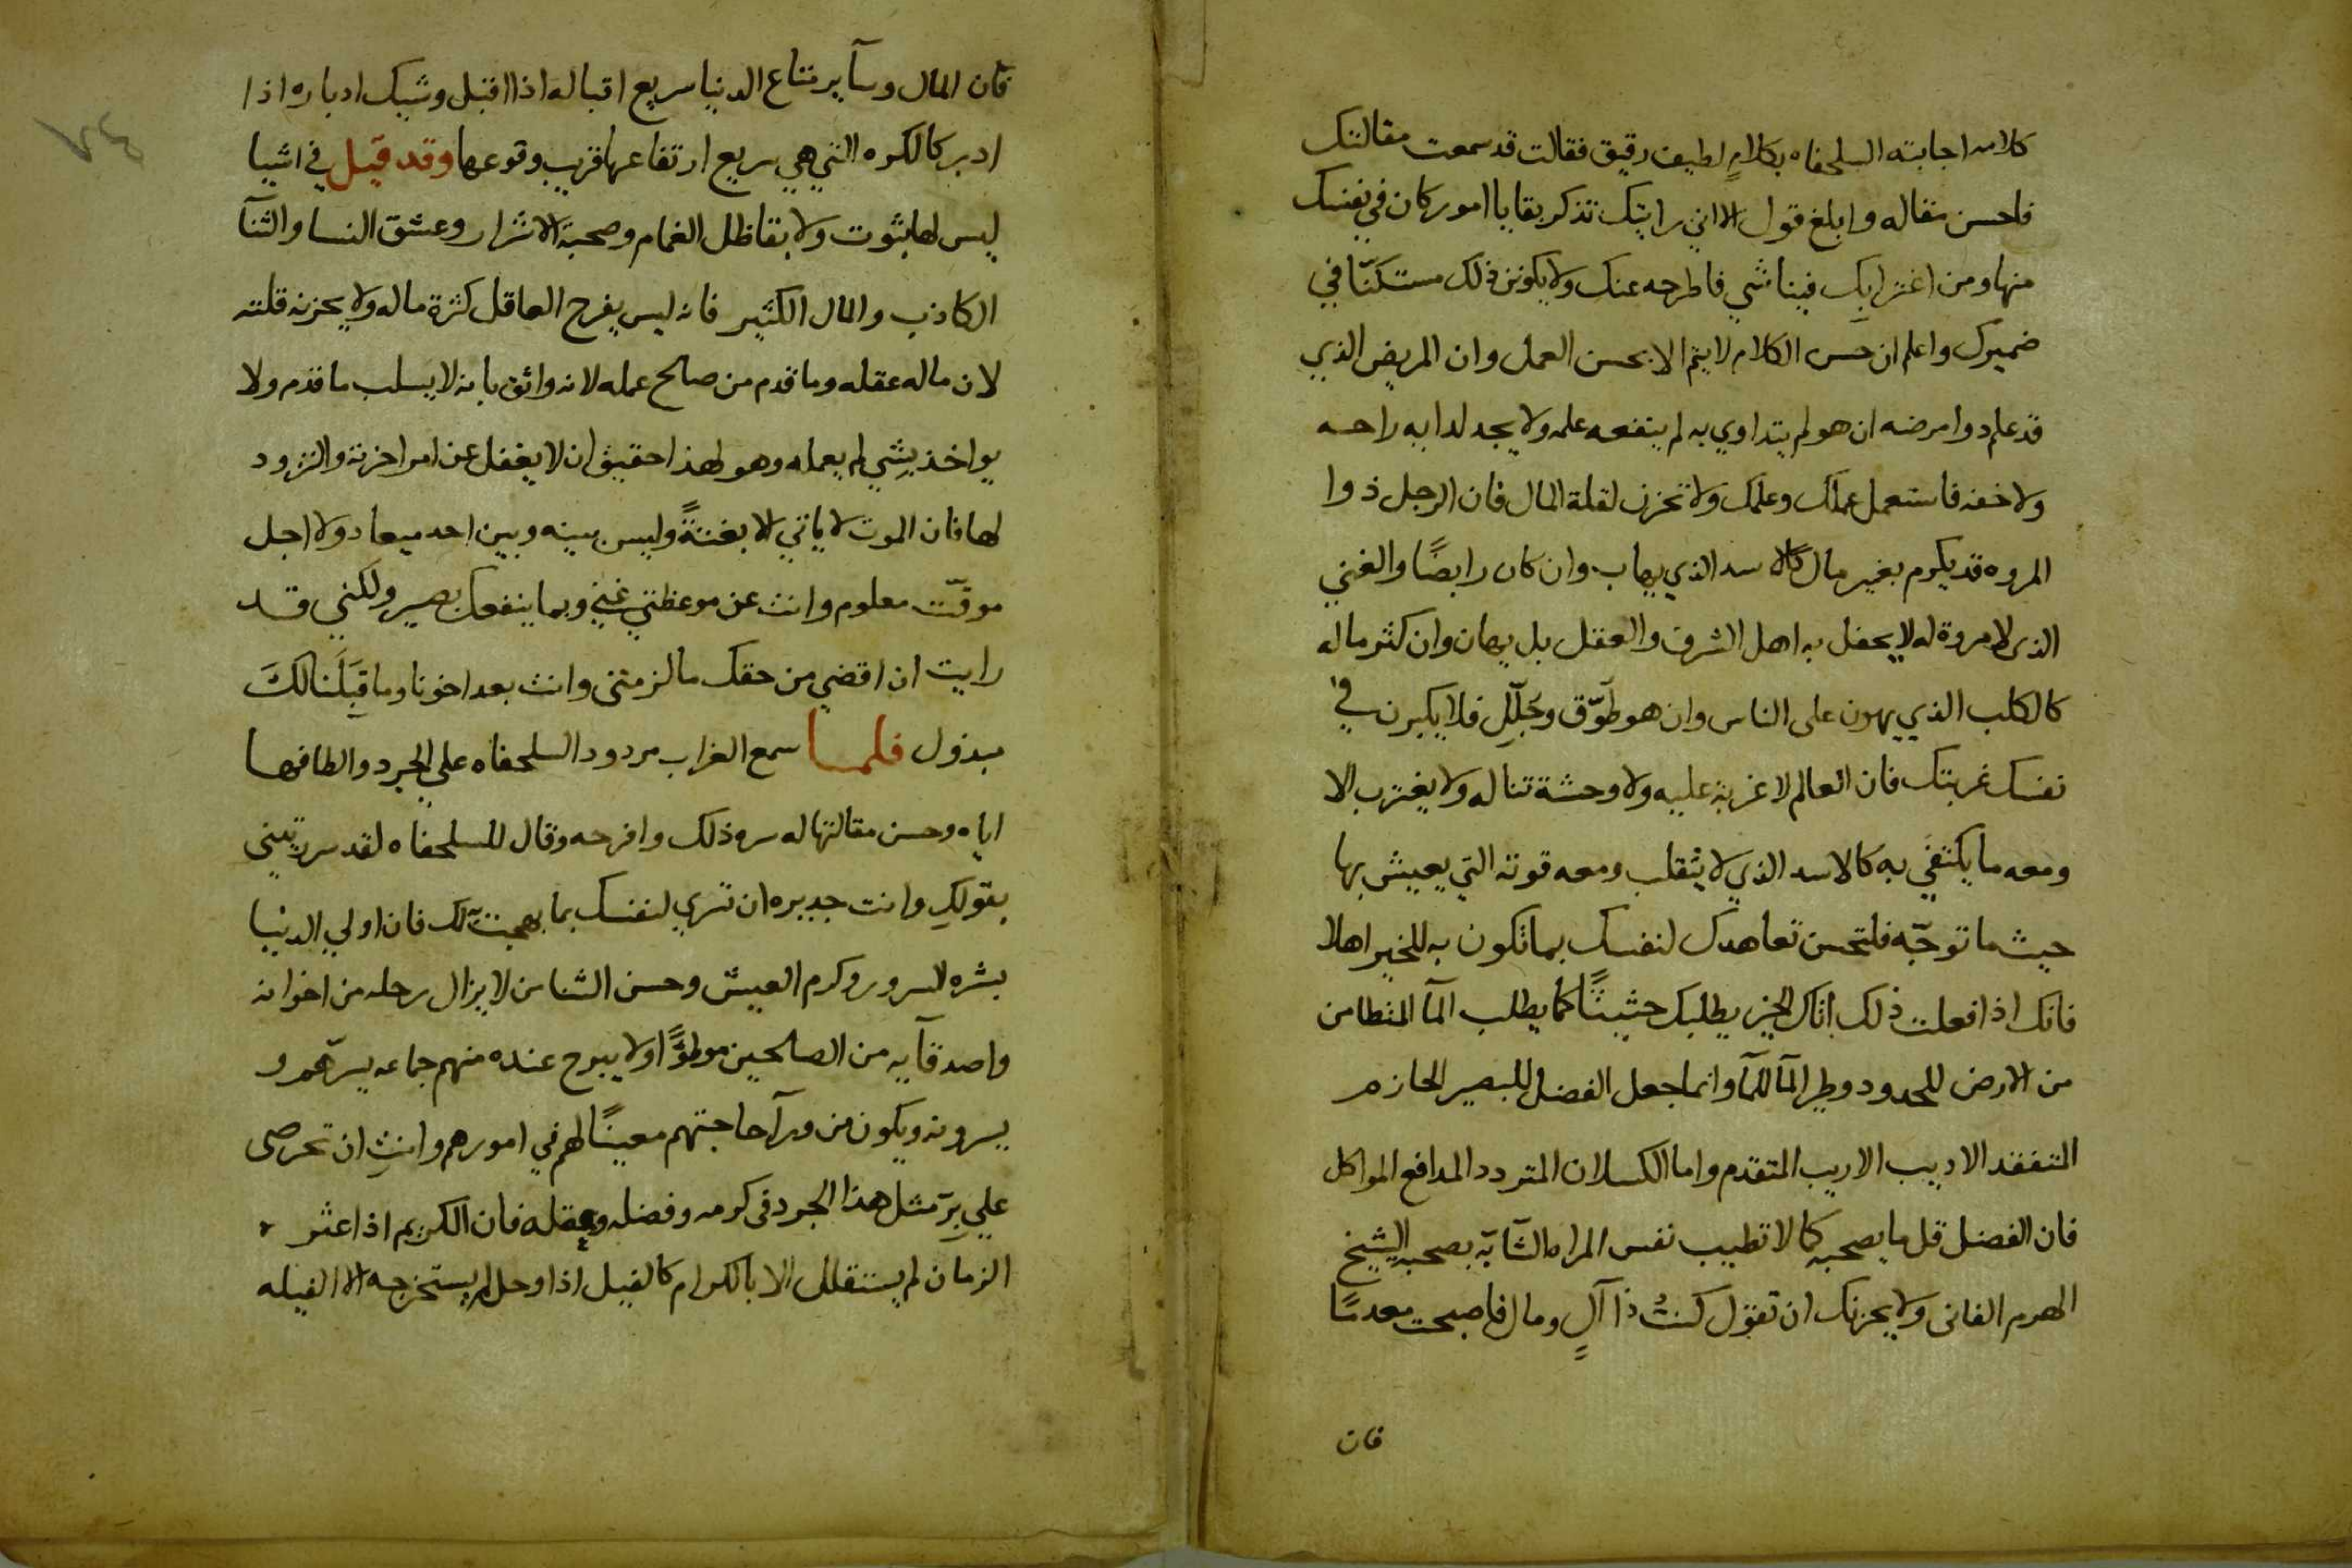 كلامه اجابته السلحفاه بكلامٍ لطيف رقيق فقالت قد سمعت مقالتك
فاحسن مقاله وابلغ قول الا اني رايتك تذكر بقايا امور كان في نفسك
منها ومن اغترابك فينا شي فاطرحه عنك ولا يكونن ذلك مستكنّا في
ضميرك واعلم ان حسن الكلام لا يتم الا بحسن العمل وان المريض الذي
قد علم دوا مرضه ان هو لم يتداوي به لم ينفعه علمه ولا يجد لدابه راحه
ولا خفه فاستعمل عملك وعلمك ولا تحزن لقلة المال فان الرجل ذوا
المروه قد يكرم بغير مال كالاسد الذي يهاب وان كان رابضًا والغني
الذى لا مروة له لا يحفل به اهل الشرف والعقل بل يهان وان كثر ماله
كالكلب الذي يهون على الناس وان هو طوّق وجُلّل فلا يكبرن في
نفسك غربتك فان العالم لا غربة عليه ولا وحشة تناله ولا يغترب الا
ومعه ما يكتفي به كالاسد الذي لا يتقلب ومعه قوته التي يعيش بها
حيث ما توجّه فلتحسن تعاهدك لنفسك بما تكون به للخير اهلا
فانك اذا فعلت ذلك اتاك الخير يطلبك حثيثًا كما يطلب المآ المتطامن
من الارض للحدود وطير المآ للمآ وانما جعل الفضل للبصير الحازم
المتفقد الاديب الاريب المتقدم واما الكسلان المتردد المدافع المواكل
فان الفضل قل ما يصحبه كما لا تطيب نفس المراه الشآبّه بصحبه الشيخ
الهرم الفانى ولا يحزنك ان تقول كنتُ ذا آلٍ ومال فاصبحت معدمًا
فان
فان المال وسآير متاع الدنيا سريع اقباله اذا اقبل وشيك ادباره اذا
ادبر كالكره التي هي سريع ارتفاعها قريب وقوعها وقد قيل في اشيا
ليس لها ثبوت ولا بقا ظل الغمام وصحبة الاشرار وعشق النسا والثنآ
الكاذب والمال الكثير فانه ليس يفرح العاقل كثرة ماله ولا يحزنه قلته
لان ماله عقله وما قدم من صالح عمله لانه واثق بانه لا يسلب ما قدم ولا
يواخذ بشي لم يعمله وهو لهذا حقيق ان لا يغفل عن امر اخرته والتزود
لها فان الموت لا ياتي الا بغتةً وليس بينه وبين احد ميعاد ولا اجل
موقّت معلوم وانت عن موعظتي غني وبما ينفعك بصير ولكني قد
رايت ان اقضي من حقك ما لزمتنى وانت بعد اخونا وما قِبَلَنا لكَ
مبذول فلما سمع الغراب مردود السلحفاه علي الجرد والطافها
اياه وحسن مقالتها له سره ذلك وافرحه وقال للسلحفاه لقد سررتيني
بقولكِ وانت جديره ان تسري لنفسك بما بهجت لك فان اولي الدنيا
بشره السرور وكرم العيش وحسن الثنا من لا يزال رحله من اخوانه
واصدقآيه من الصالحين موطوًّا ولا يبرح عنده منهم جماعه يسرّهم و
يسرونه ويكون من ورآ حاجتهم معينًا لهم في امورهم وانتِ ان تحرصى
علي برّ مثل هذا الجرد فى كرمه وفضله وعقله فان الكريم اذا عثر
الزمان لم يستقلل الا بالكرام كالفيل اذا وحل لم يستخرجه الا الفيله